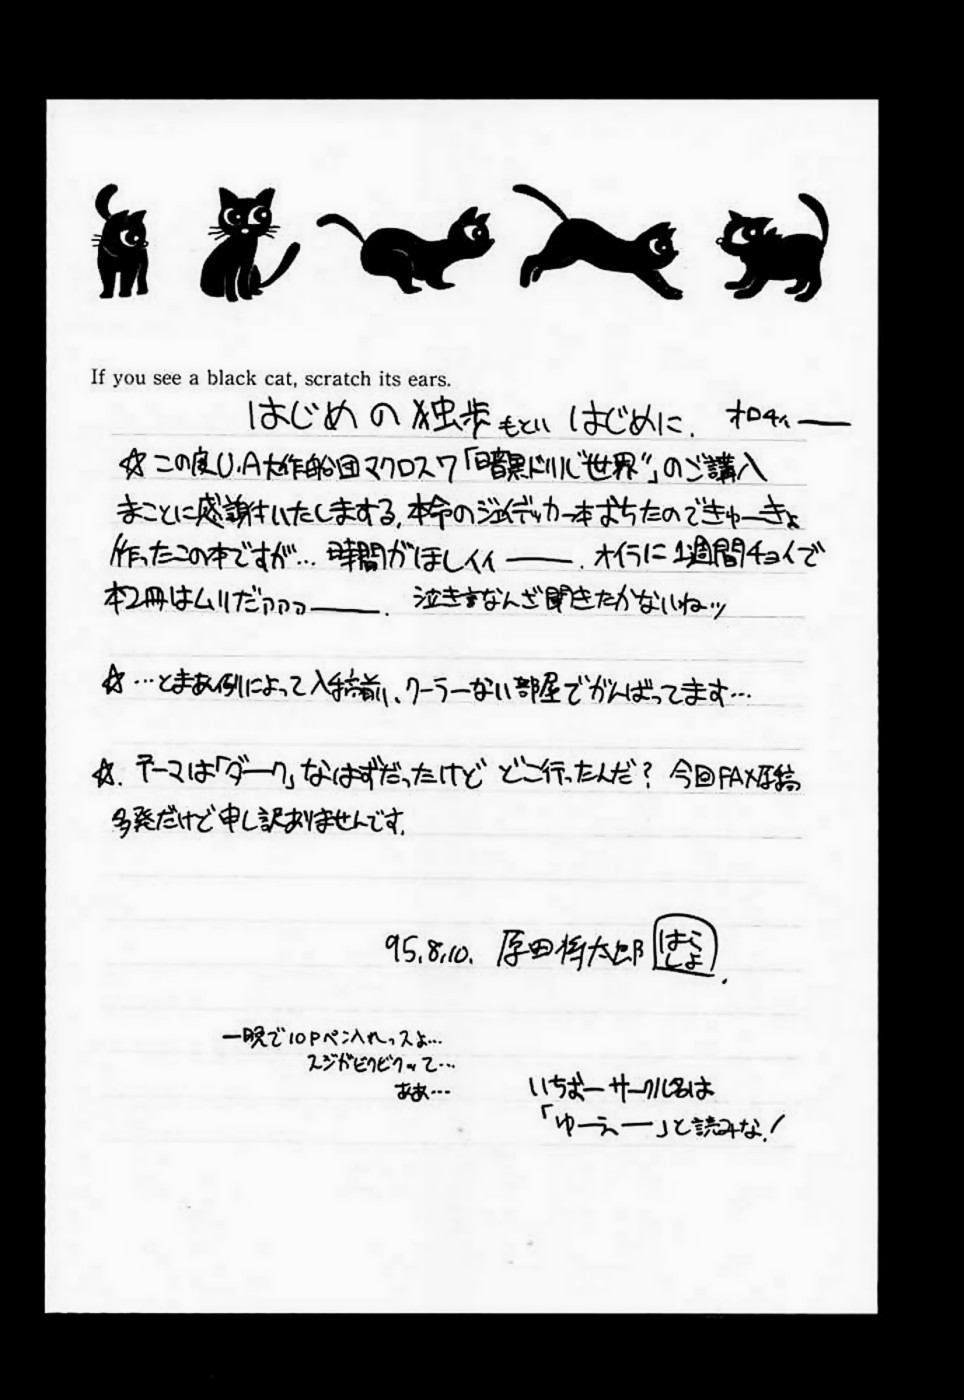 If you see a black cat, scratch its ears.
はじめの独歩 もとい はじめに. オロチィ——
☆ この度U.A大作船団マクロス7「暗黒ドリル世界”」のご講入
まことに感謝けいたしまする, 本命のジェイデッカー本おちたのできゅーきょ
作ったこの本ですが… 時間がほしィィ——. オイラに1週間チョイで
本2冊はムリだァァァ——. 泣き言なんざ聞きたかないねッ
☆ …とまあ例によって入稿前、クーラーない部屋でがんばってます…
☆. テーマは「ダーク」なはずだったけど どこ行ったんだ? 今回FAX原稿
多発だけど申し訳ありませんです.
95.8.10. 原田将太郎 はら しょ.
一晩で10Pペン入れっスよ…
スジがビクビクッて…
ああ…
いちおーサークル名は
「ゆーえー」と読みな!